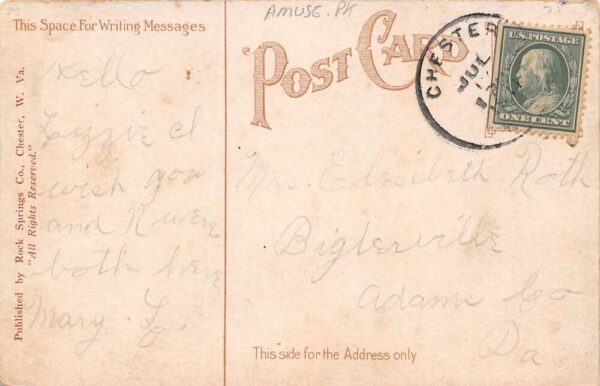 This Space For Writing Messages
AMUSE. PK
POST CARD
CHESTER
JUL
U.S. POSTAGE
ONE CENT
Hello
Lizzie I
wish you
and N were
both here
Mary L.
Published by Rock Springs Co., Chester, W. Va.
"All Rights Reserved."
Mrs. Elesibeth Roth
Biglersville
Adams Co
Pa
This side for the Address only